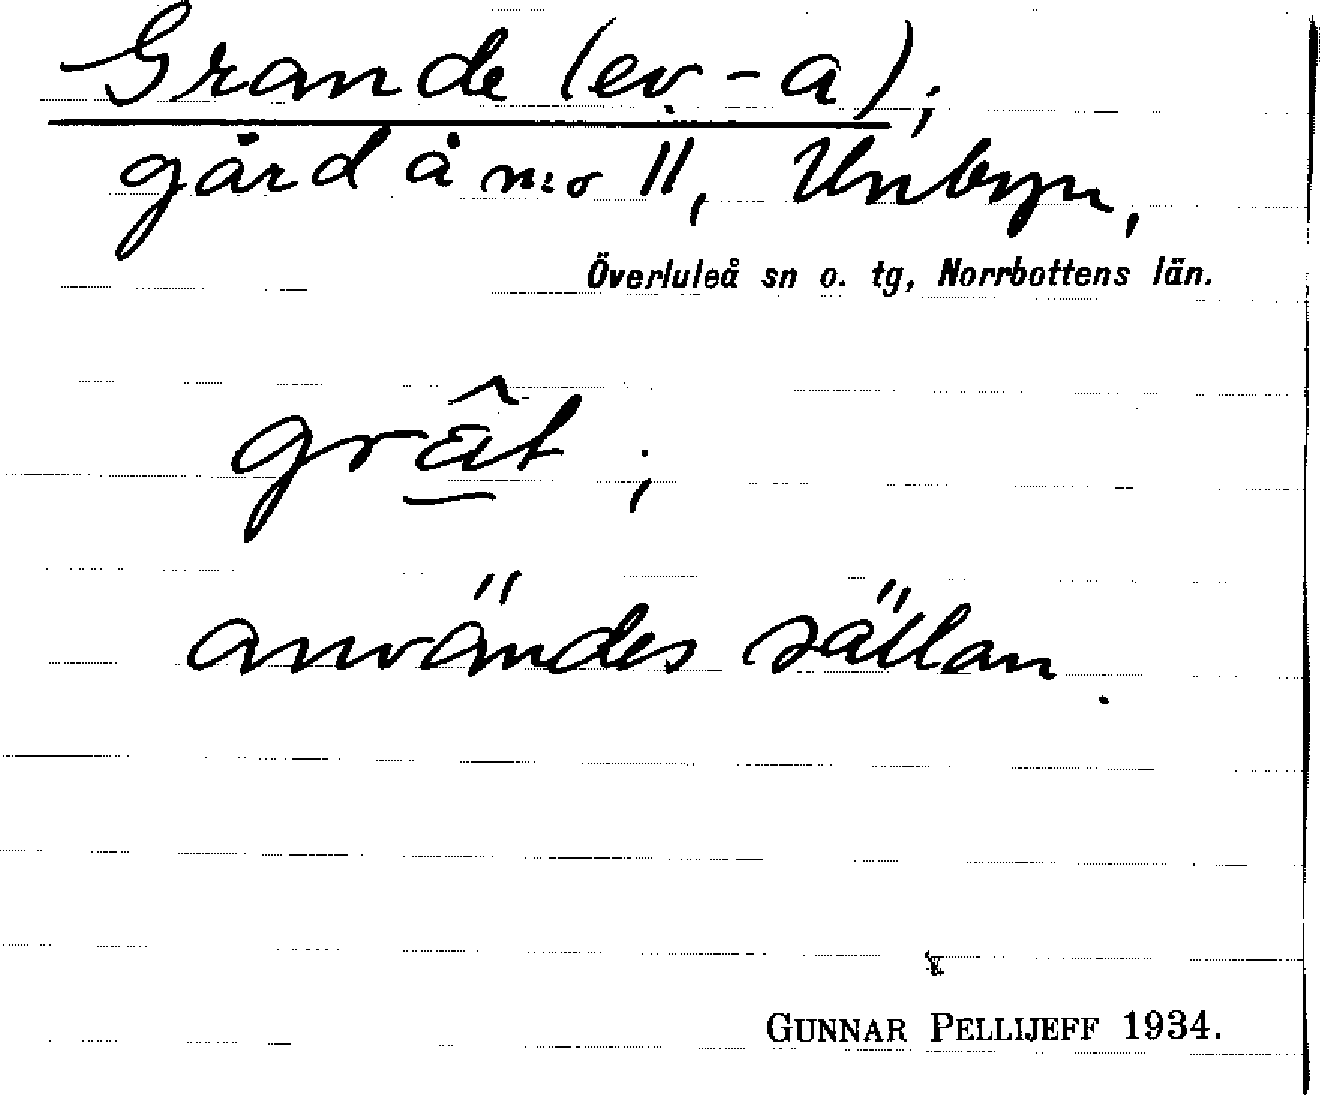 Grande (ev. -a);
gård å n:o 11, Unbyn,
Överluleå sn o. tg, Norrbottens län.
grât ;
användes sällan.
GUNNAR PELLIJEFF 1934.